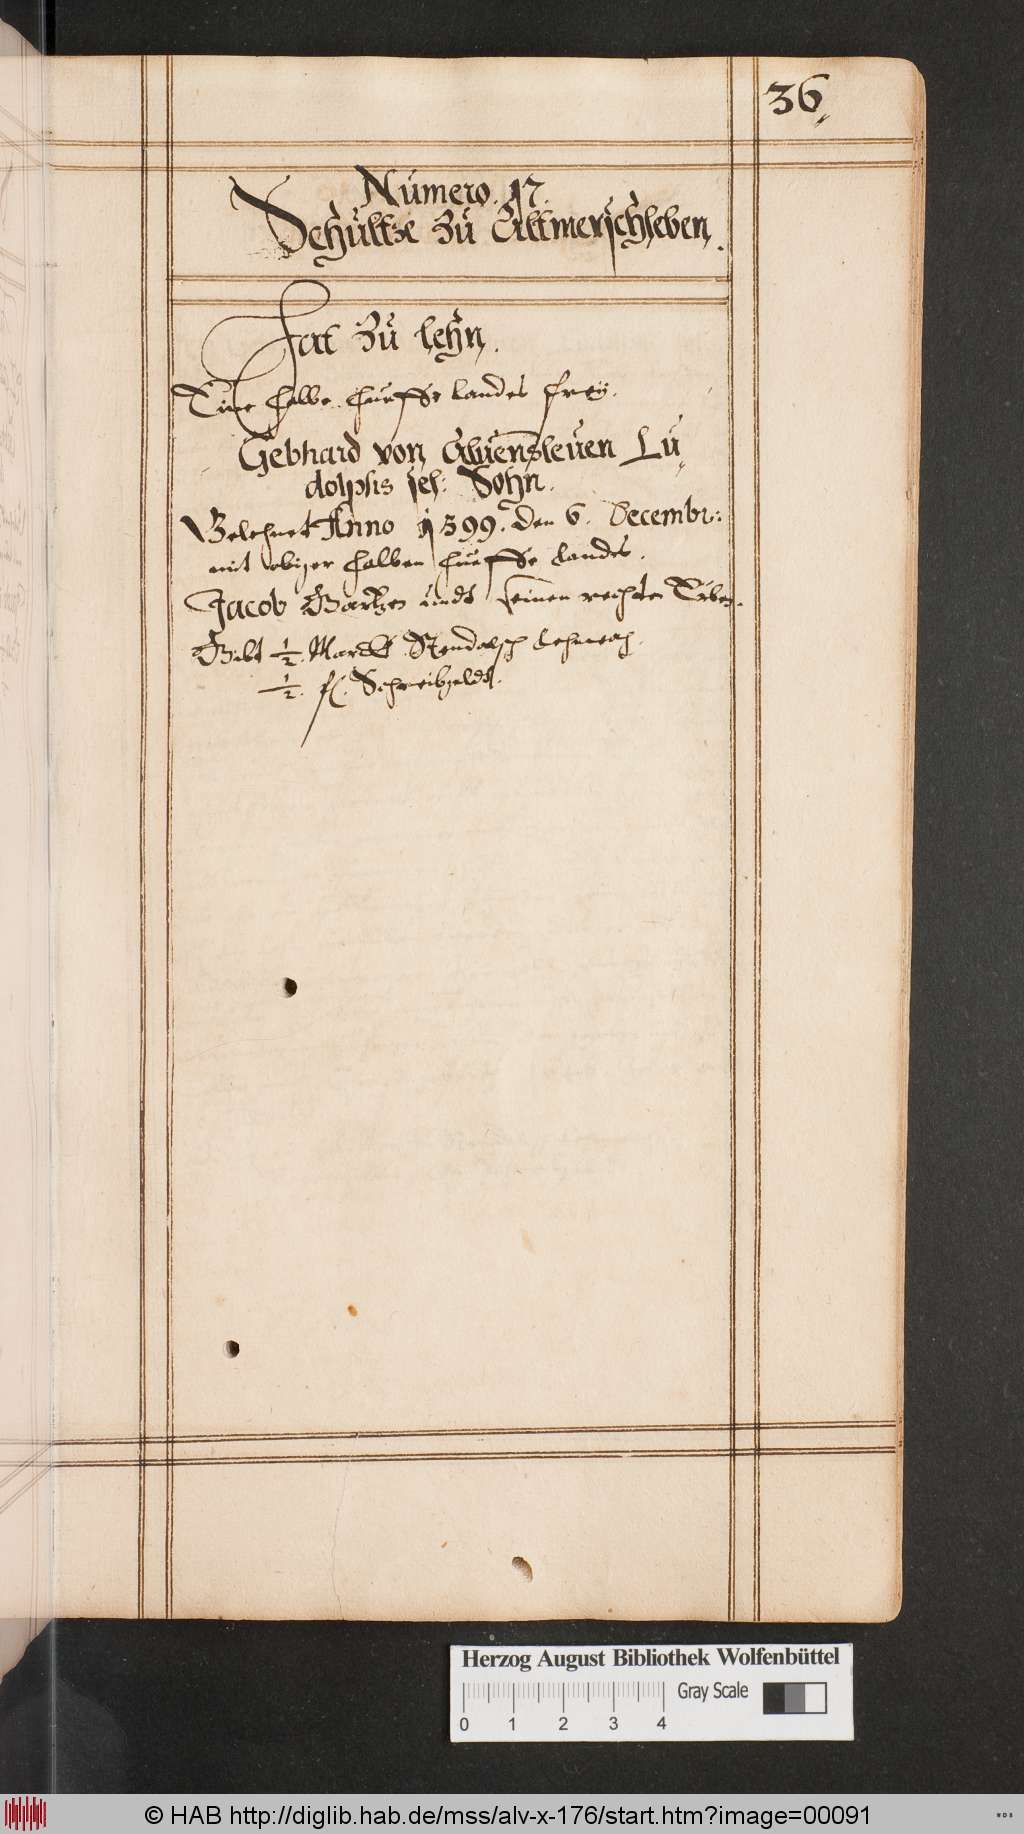 36,
Numero. 17.
Schultze zu Altmerschleben,
Hat zu lehn,
Eine halbe hueffe landes frey.
Gebhard von Aluensleuen Lu,
dolphs sel: Sohn.
Belehnet Anno 1599. den 6. Decembr:
mit obiger halben hueffe landes.
Jacob Bartzen undt seinen rechten Erben.
Gibt ½. Marck Stendalsch Lehnwah.
½. fl. Schreibgeldt.
Herzog August Bibliothek Wolfenbüttel
Gray Scale
0 1 2 3 4
© HAB http://diglib.hab.de/mss/alv-x-176/start.htm?image=00091